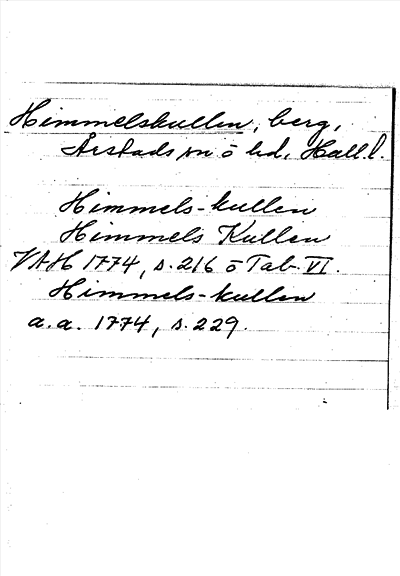 Himmelskullen, berg,
Årstads sn ō hd, Hall. l.
Himmels-kullen
Himmels Kullen
VAH 1774, s. 216 ō Tab. VI.
Himmels-kullen
a. a. 1774, s. 229.